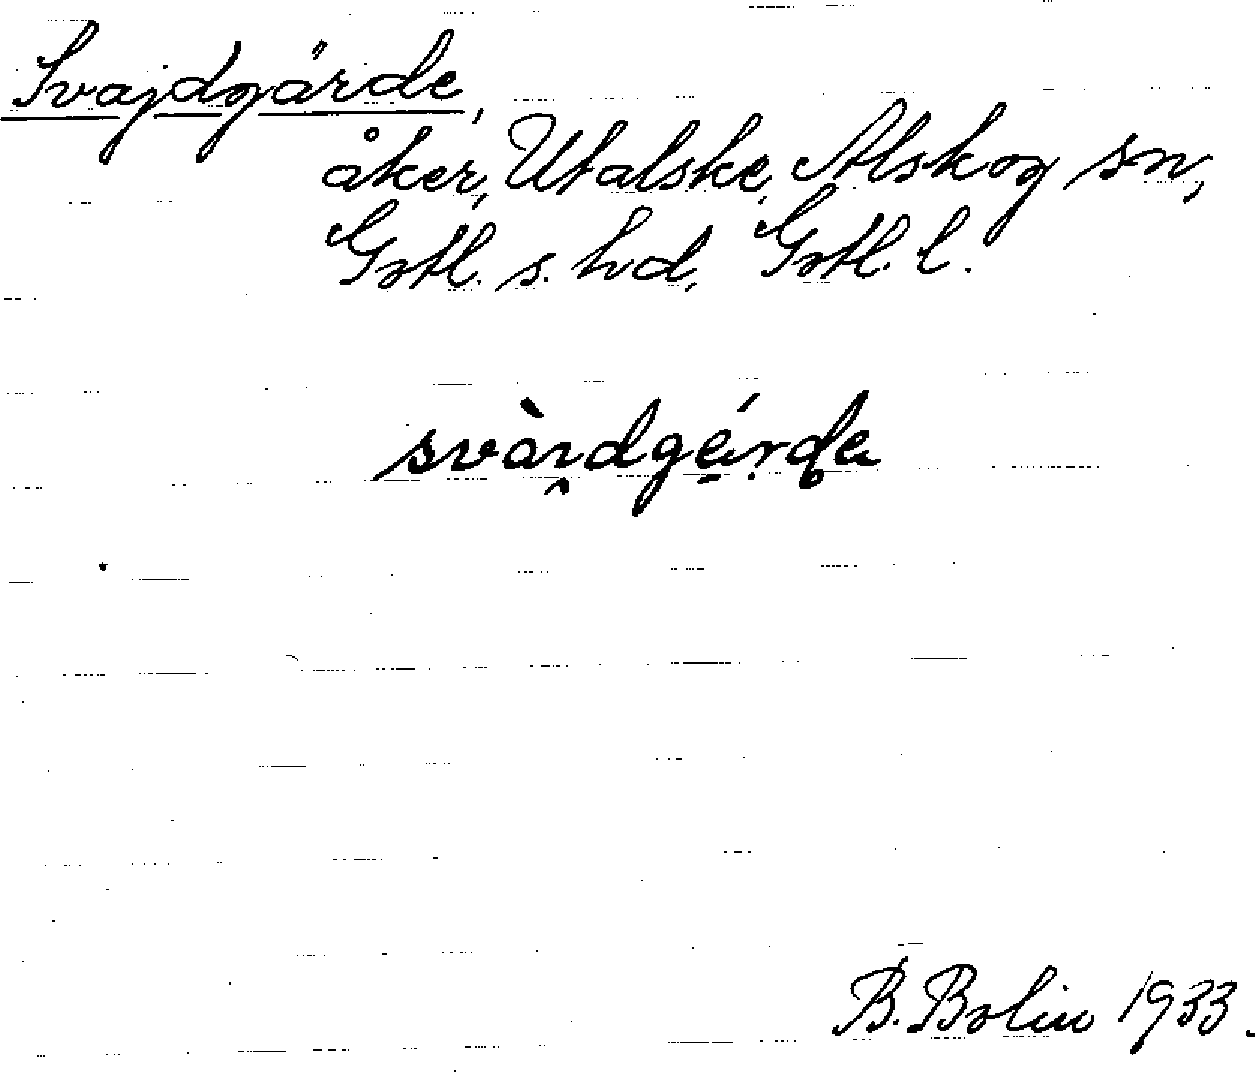 Svajdgärde,
åker, Utalske, Alskog sn,
Gotl. s. hd, Gotl. l.
svàı̯dgǽrde
B. Bolin 1933.